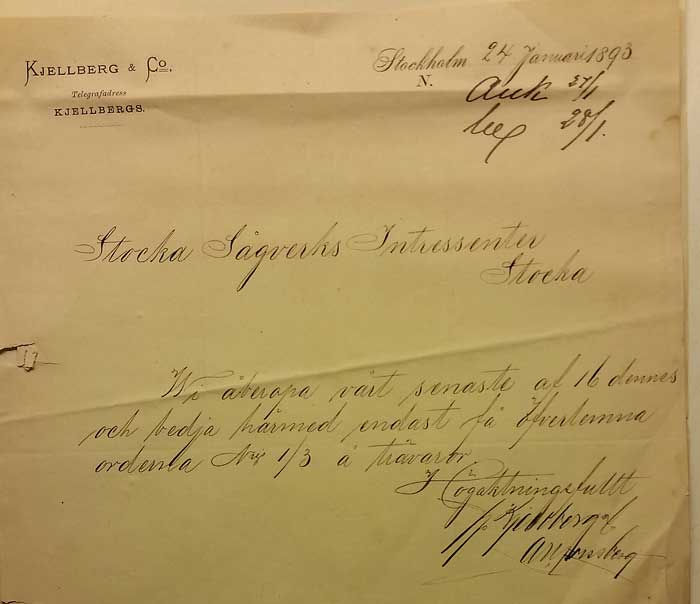 KJELLBERG & Co.
Telegrafadress
KJELLBERGS.
Stockholm 24 Januari 1893
N.
Ank 27/1
28/1.
Stocka Sågverks Intressenter
Stocka
Wi åberopa vårt senaste af 16 dennes
och bedja härmed endast få öfverlemna
orderna Nris 1/3 å trävaror.
Högaktningsfullt
p. Kjellberg & Co